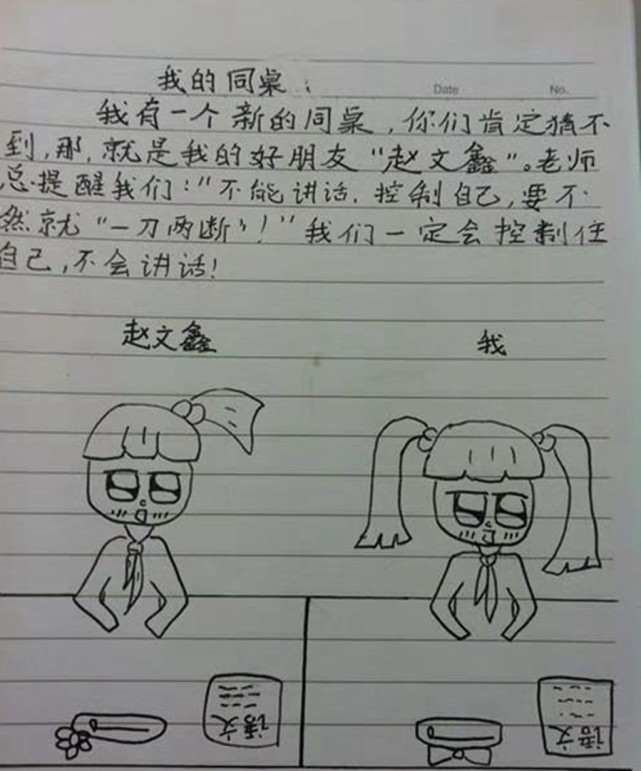 我的同桌：
Date No.
我有一个新的同桌，你们肯定猜不
到，那，就是我的好朋友“赵文鑫”。老师
总提醒我们：“不能讲话，控制自己，要不
然就“一刀两断”！”我们一定会控制住
自己，不会讲话！
赵文鑫 我
语文 语文